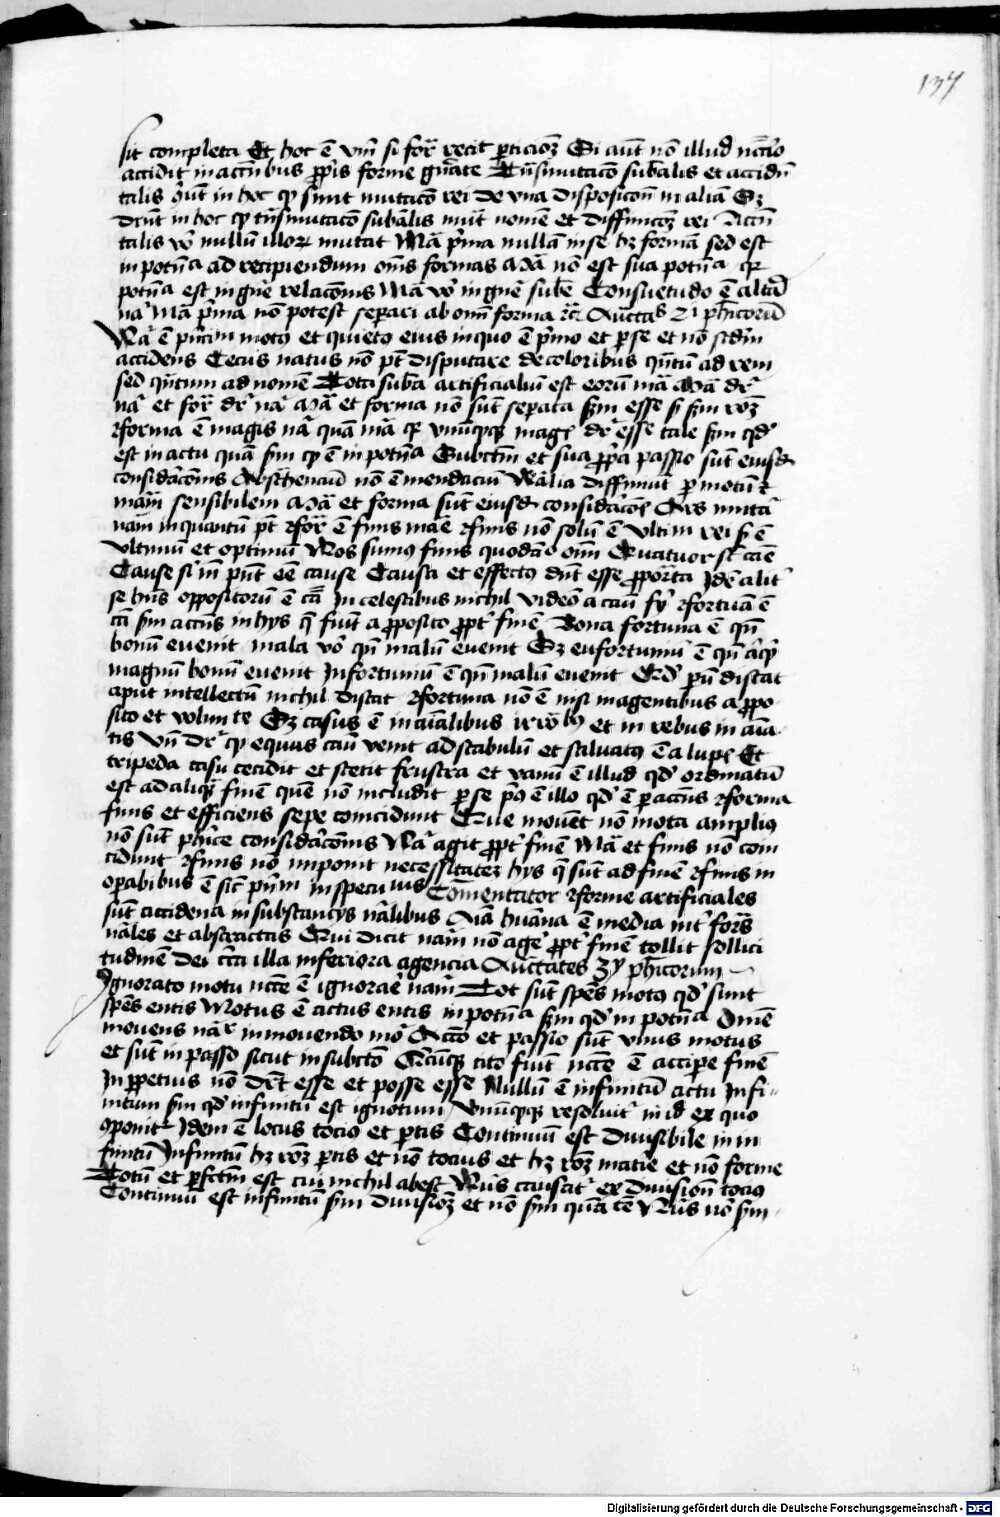 137
sit completa Et hoc ē vm̄ si for̄ recit ꝑticionē Si aut̄ nō illud nccio
accidit in accn̄ibus ꝓpris forme gn̄ate Tn̄smutacō subalis et accidn̄
talis ꝯn̄t in hoc ꝙ sunt mutacō rei de vna disposicōn̄ in aliā Sꝫ
drn̄t in hoc ꝙ tn̄smutacō subalis mut̄ nomē et diffinicōꝫ rei Accn̄
talis vo nullū illoꝝ mutat Mā pͥma nullā in se hꝫ formā sed est
in potn̄a ad recipiendum oms formas Mā nō est sua potn̄a qꝛ
potn̄a est in gn̄e relacōnis Mā vo in gn̄e sube Consuetudo ē altā
na Mā pͥma nō potest separi ab omī forma Auctas 2i ph̄icorū
Na ē pn̄cm̄ motꝯ et quietꝯ eius in quo ē pͥmo et ꝑ se et nō scdm̄
accidens Cecus natus nō pt̄ disputare de coloribus qn̄tū ad rem
sed qn̄tum ad nomē Tota suba artificialiū est eorū mā Mā dr̄
na et for̄ dr̄ na Mā et forma nō sūt sepata scm̄ esse sꝫ scm̄ roꝫ
Forma ē magis nā quam mā qꝛ vnūqꝗ mag dr̄ esse tale scm̄ qd
est in actu quā scm̄ ꝙ ē in potn̄a Subctm̄ et sua ꝓpa passio sūt eiusd
consid̄acōnis Abstrhenciū nō ē mendaciū Nālia diffiniūt ꝑ motū et
mām sensibilem Mā et forma sūt eiusd consid̄acōis Ars imita
nām inquantū pt̄ For̄ ē finis māe Finis nō solū ē vltim rei sꝫ ē
vltimū et optimū Nos sumꝯ finis quodāo oīm Quatuor st̄ cāe
Cause sī īn pn̄t eē cause Causa et effectus dn̄t esse ꝓporta Idē alit
se hn̄s oppositorū ē cā In celestibus nichil videō a casu fi Fortuna ē
cā scm̄ accns in hijs q̄ fiūt a ꝓposito ꝓpt finē Bona fortuna ē qn̄
bonū evenit mala vo qn̄ malū evenit Sꝫ eufortumū ē qn̄
magnū bonū evenit Infortumū ē qn̄ malū evenit distat
aput intellectū nichil distat Fortuna nō ē nisi in agentibus a ꝓpo
sito et volun te Sꝫ casus ē in aīalibus et in rebus in aīa-
tis Vn̄ dr̄ ꝙ equus casu venit ad stabulū et saluatꝯ ē a lupo Et
tripeda casu cecidit et stetit frustra et vanū ē illud qd ordinatū
est ad aliqꝫ finē quē nō includit ꝑ se pͥꝯ ē illo qd ē ꝑ accns Forma
finis et efficiens sepe coincidunt Que mouēt nō mota amplius
nō sūt ph̄ice consid̄acōnis Na agit ꝓpt finē Mā et finis nō coin
cidunt Finis nō imponit necessitateꝫ hijs q̄ sūt ad finē Finis in
opabibus ē sic pn̄m in speculiuis Comentator Forme artificiales
sūt accidencia in substancijs nālibus Aīa huāna ē media int for̄s
nāles et abstractas Qui dicit nām nō age ꝓpt finē tollit sollici
tudinē dei circa illa inferiora agencia Auctates 3ij ph̄icorum
Ignorato motu ncce ē ignorare nām Tot sūt spēs motꝯ qd sunt
spēs entis Motus ē actus entis in potn̄a scm̄ qd in potn̄a Omē
mouens nar in mouendo mor̄ Accō et passio sūt vnus motus
et sūt in passo sicut in subcto Qcūqꝫ cito fiūt ncce ē accipe finē
In ꝑpetuis nō drt̄ esse et posse esse Nullū ē infinitū actu Infi-
nitum scm̄ qd infinitū est ignotum Vnūqꝗꝫ resoluit in id ex quo
ꝯponit Idem ē locus tociꝯ et ꝑtis Continuū est diuisibile in in
finitū Infinitū hꝫ roꝫ ꝑtis et nō tocius et hꝫ roꝫ matie et nō forme
Totū et ꝑfctm̄ est cui nichil abest Nūs causat ex diuisionē tociꝯ
Continuū est infinitū scm̄ diuisioꝫ et nō scm̄ quātite Nūs nō scm̄
Digitalisierung gefördert durch die Deutsche Forschungsgemeinschaft - DFG